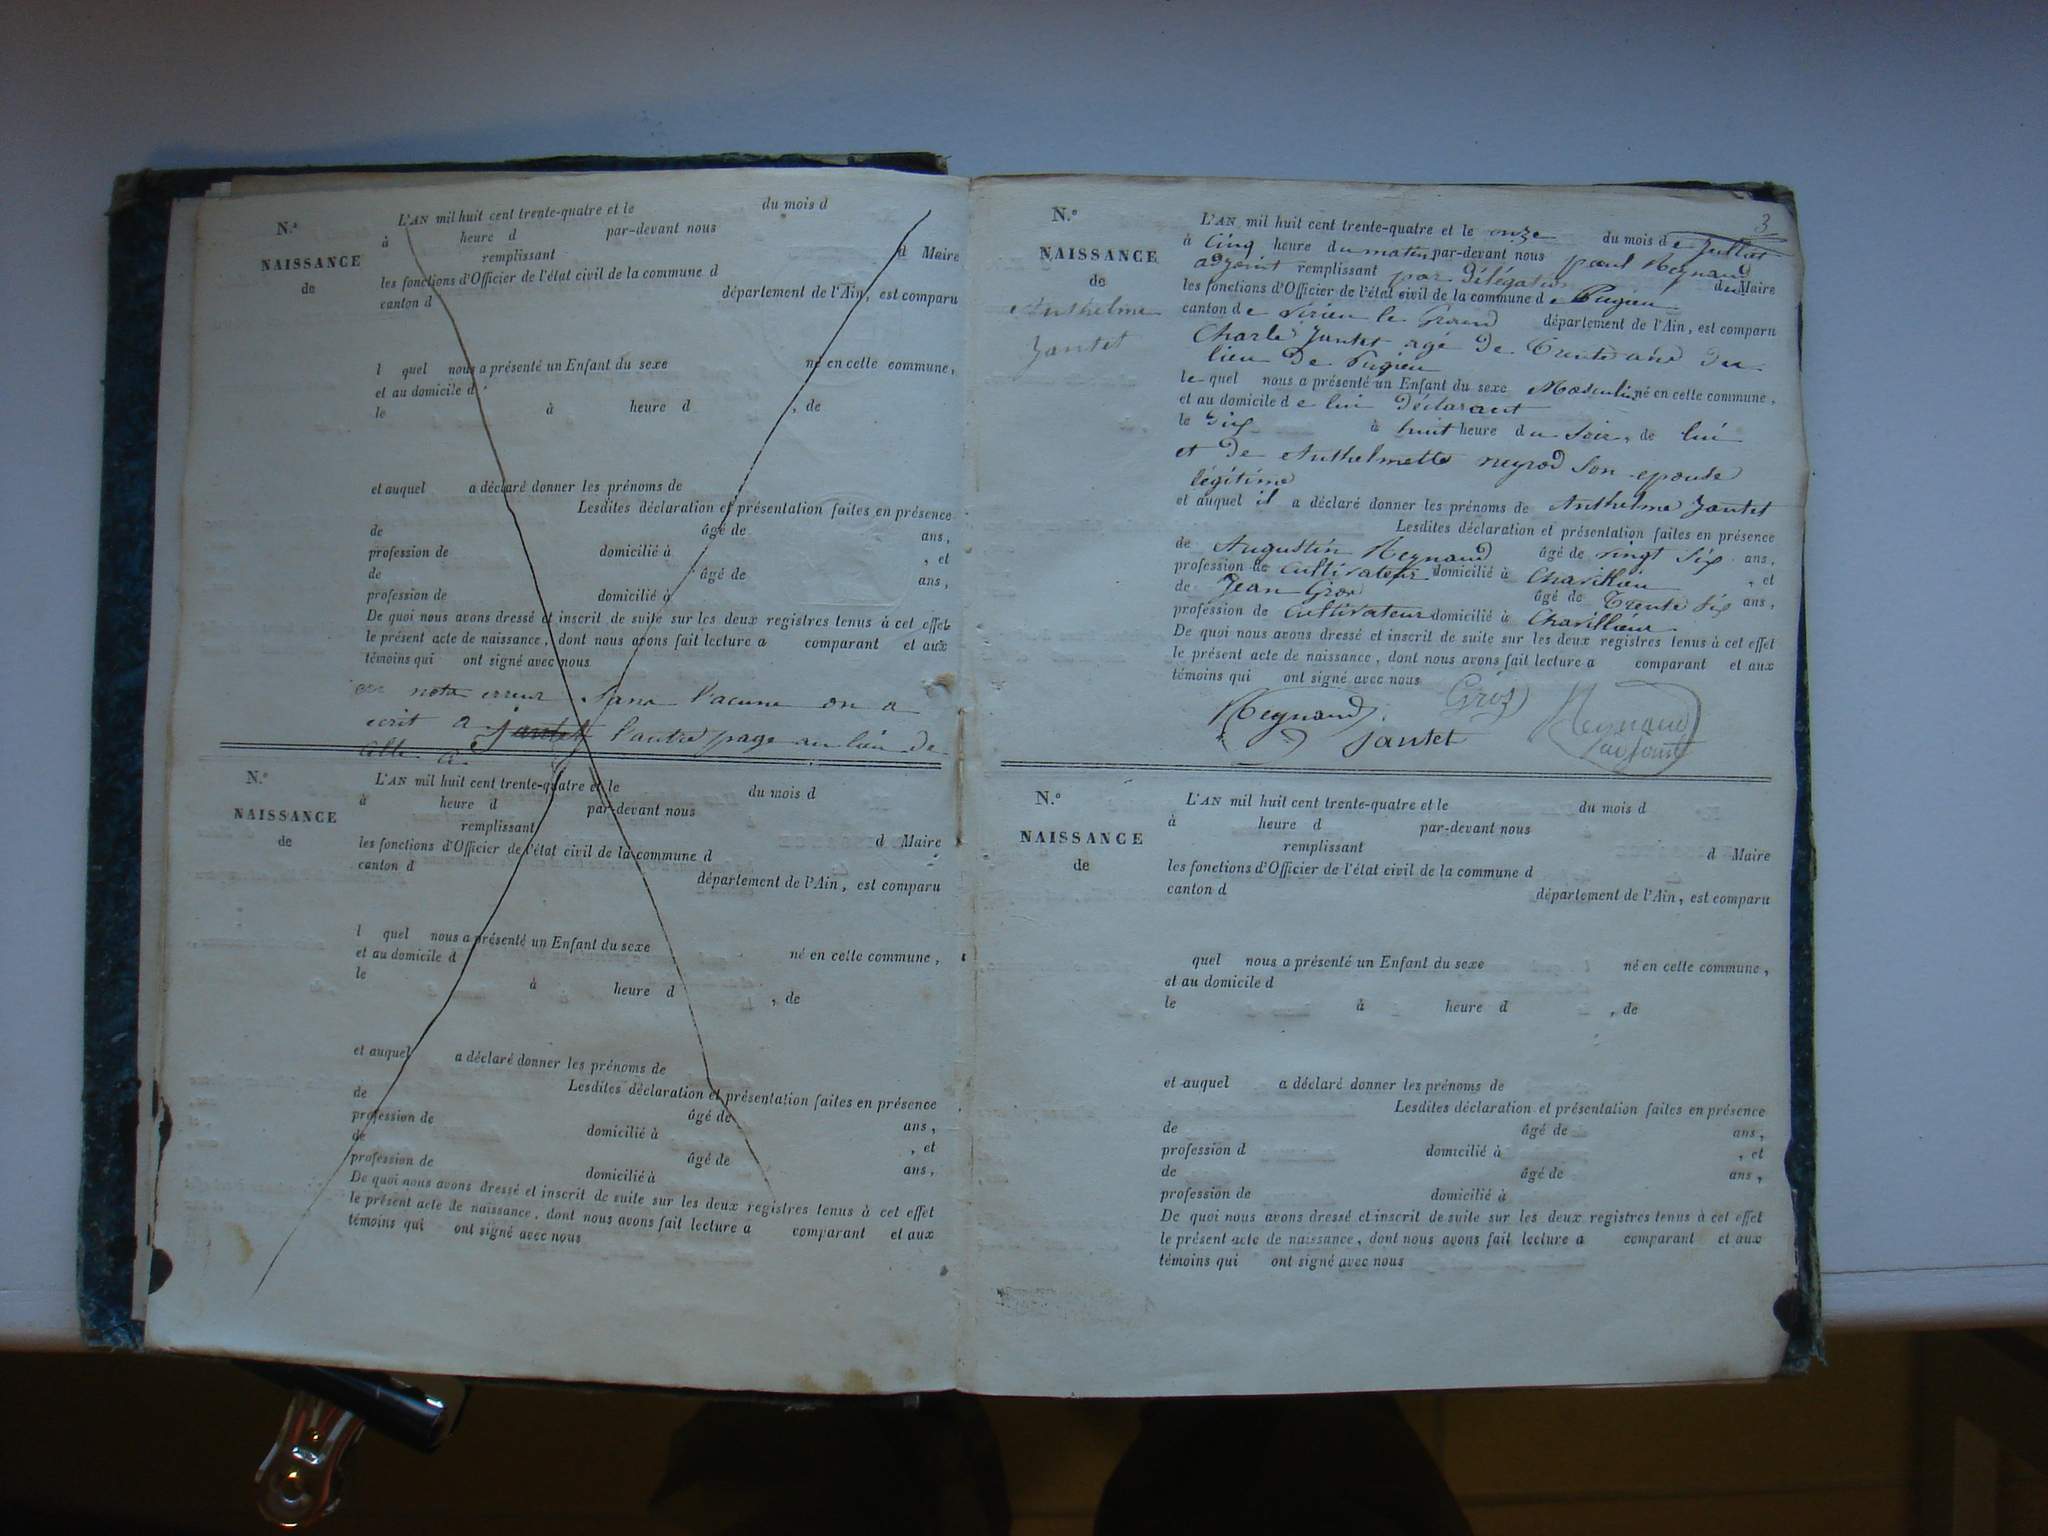 N.º
NAISSANCE
de
L'AN mil huit cent trente-quatre et le du mois d
à heure d par-devant nous
remplissant d Maire
les fonctions d'Officier de l'état civil de la commune d
canton d département de l'Ain, est comparu
l quel nous a présenté un Enfant du sexe né en cette commune,
et au domicile d
le à heure d , de
et auquel a déclaré donner les prénoms de
Lesdites déclaration et présentation faites en présence
de âgé de ans,
profession de domicilié à , et
de âgé de ans,
profession de domicilié à
De quoi nous avons dressé et inscrit de suite sur les deux registres tenus à cet effet
le présent acte de naissance, dont nous avons fait lecture a comparant et aux
témoins qui ont signé avec nous
nota erreur Sans l'acune on a
écrit a l'autre page au lieu de
N.º
NAISSANCE
de
L'AN mil huit cent trente-quatre et le du mois d
à heure d par-devant nous
remplissant d Maire
les fonctions d'Officier de l'état civil de la commune d
canton d département de l'Ain, est comparu
l quel nous a présenté un Enfant du sexe né en cette commune,
et au domicile d
le à heure d , de
et auquel a déclaré donner les prénoms de
Lesdites déclaration et présentation faites en présence
de âgé de ans,
profession de domicilié à , et
de âgé de ans,
profession de domicilié à
De quoi nous avons dressé et inscrit de suite sur les deux registres tenus à cet effet
le présent acte de naissance, dont nous avons fait lecture a comparant et aux
témoins qui ont signé avec nous
3
N.º
NAISSANCE
de
Anthelme
Jantet
L'AN mil huit cent trente-quatre et le onze du mois de Juillet
à cinq heure du matin par-devant nous paul Reynaud
adjoint remplissant par délégation du Maire
les fonctions d'Officier de l'état civil de la commune de Pugieu
canton de Virieu le Grand département de l'Ain, est comparu
Charle Jantet agé de Trente ans du
lieu de Pugieu
le quel nous a présenté un Enfant du sexe Masculin né en cette commune,
et au domicile de lui déclarant
le dix à huit heure du Soir, de lui
et de Anthelmette neyrod Son epouse
légitime
et auquel il a déclaré donner les prénoms de Anthelme Jantet
Lesdites déclaration et présentation faites en présence
de Augustin Reynaud âgé de vingt Six ans,
profession de cultivateur domicilié à Chavillieu , et
de Jean Gros âgé de Trente Six ans,
profession de cultivateur domicilié à Chavillieu
De quoi nous avons dressé et inscrit de suite sur les deux registres tenus à cet effet
le présent acte de naissance, dont nous avons fait lecture a comparant et aux
témoins qui ont signé avec nous
Reynaud Gros Reynaud
Jantet adjoint
N.º
NAISSANCE
de
L'AN mil huit cent trente-quatre et le du mois d
à heure d par-devant nous
remplissant d Maire
les fonctions d'Officier de l'état civil de la commune d
canton d département de l'Ain, est comparu
quel nous a présenté un Enfant du sexe né en cette commune,
et au domicile d
le à heure d , de
et auquel a déclaré donner les prénoms de
Lesdites déclaration et présentation faites en présence
de âgé de ans,
profession d domicilié à , et
de âgé de ans,
profession de domicilié à
De quoi nous avons dressé et inscrit de suite sur les deux registres tenus à cet effet
le présent acte de naissance, dont nous avons fait lecture a comparant et aux
témoins qui ont signé avec nous